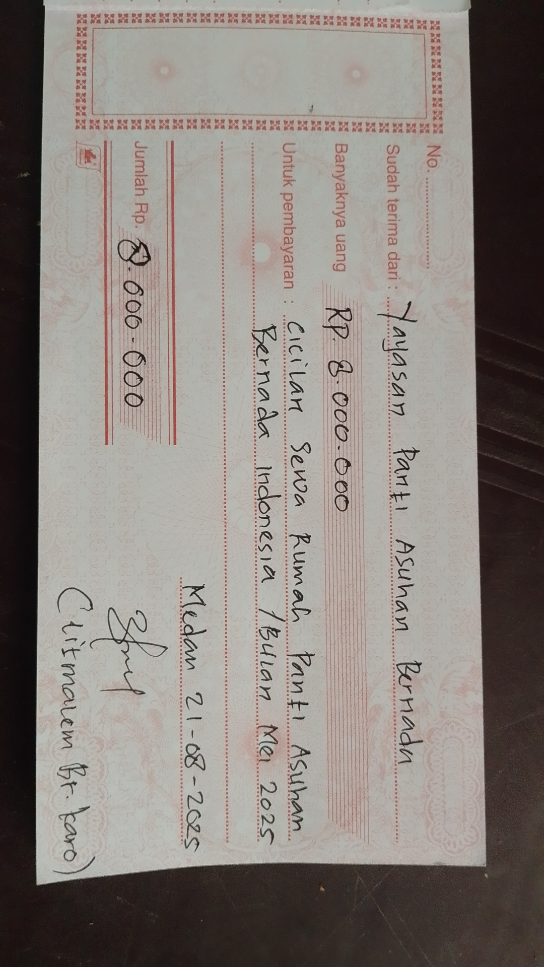 No.
Sudah terima dari : Yayasan Panti Asuhan Bernada
Banyaknya uang Rp. 8.000.000
Untuk pembayaran : Cicilan Sewa Rumah Panti Asuhan
Bernada Indonesia / Bulan Mei 2025
Medan 21-08-2025
Jumlah Rp. 8.000.000
(Litmalem Br. karo)